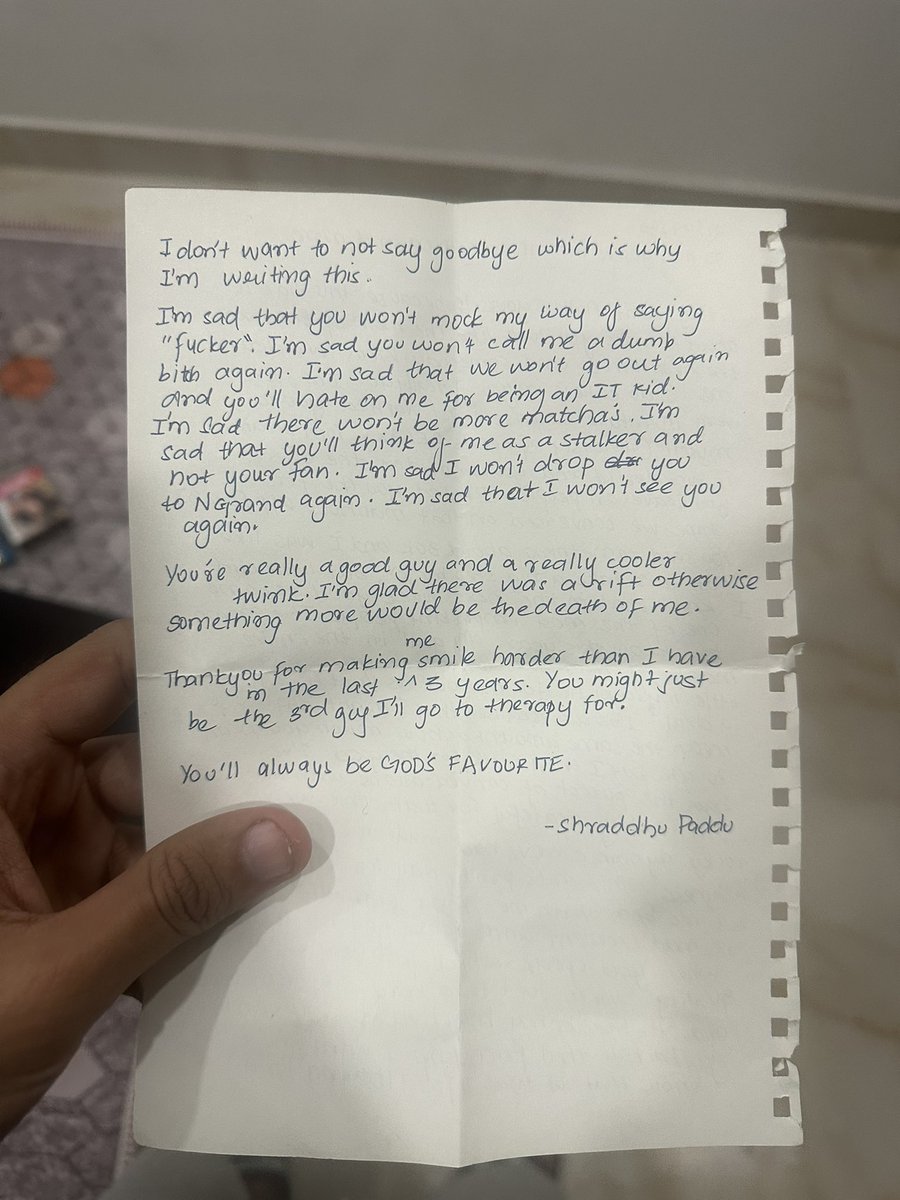 I don't want to not say goodbye which is why
I'm writing this.
I'm sad that you won't mock my way of saying
"fucker". I'm sad you won't call me a dumb
bitch again. I'm sad that we won't go out again
and you'll hate on me for being an IT kid.
I'm sad there won't be more matcha's. I'm
sad that you'll think of me as a stalker and
not your fan. I'm sad I won't drop you
to NGrand again. I'm sad that I won't see you
again.
You're really a good guy and a really cooler
twink. I'm glad there was a rift otherwise
something more would be the death of me.
me
Thankyou for making smile harder than I have
in the last ^ 3 years. You might just
be the 3rd guy I'll go to therapy for.
You'll always be GOD'S FAVOURITE.
-Shraddhu Paddu